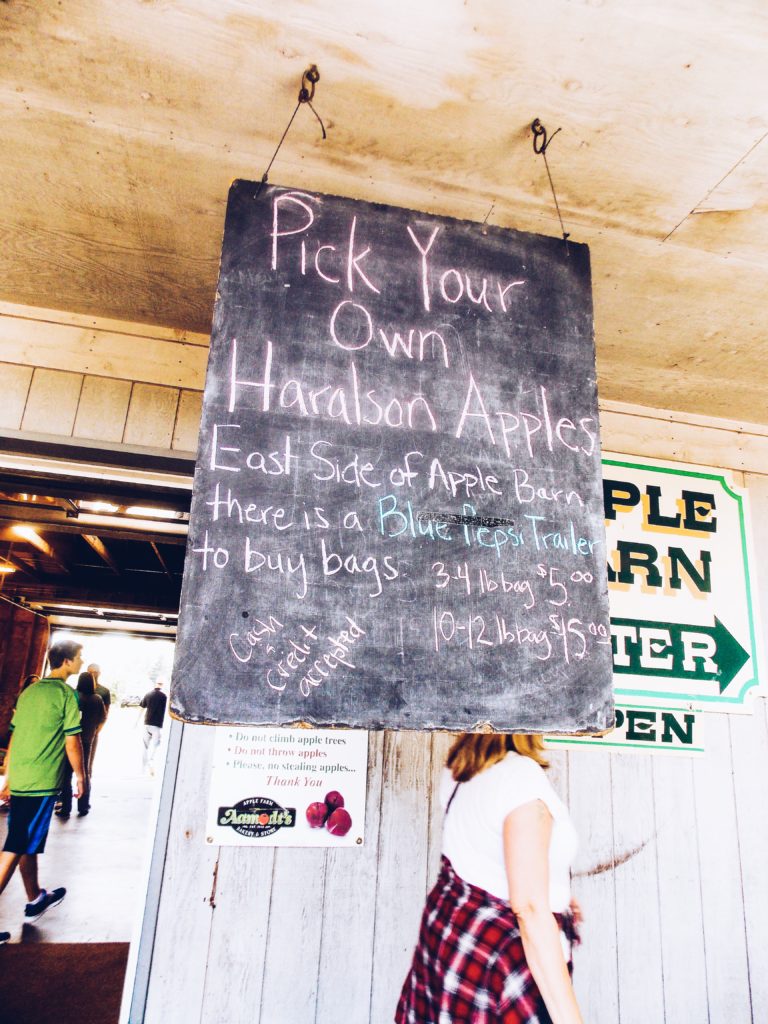 Pick Your
Own
Haralson Apples
East Side of Apple Barn
there is a Blue Pepsi Trailer
to buy bags
3-4 lb bag $5.00
10-12 lb bag $15.00
Cash
+
credit
accepted
PLE
ARN
TER
PEN
• Do not climb apple trees
• Do not throw apples
• Please, no stealing apples...
Thank You
APPLE FARM
Aamodt's
BAKERY & STORE